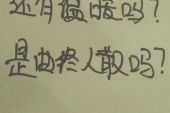 还有温暖吗？
是曲终人散吗？